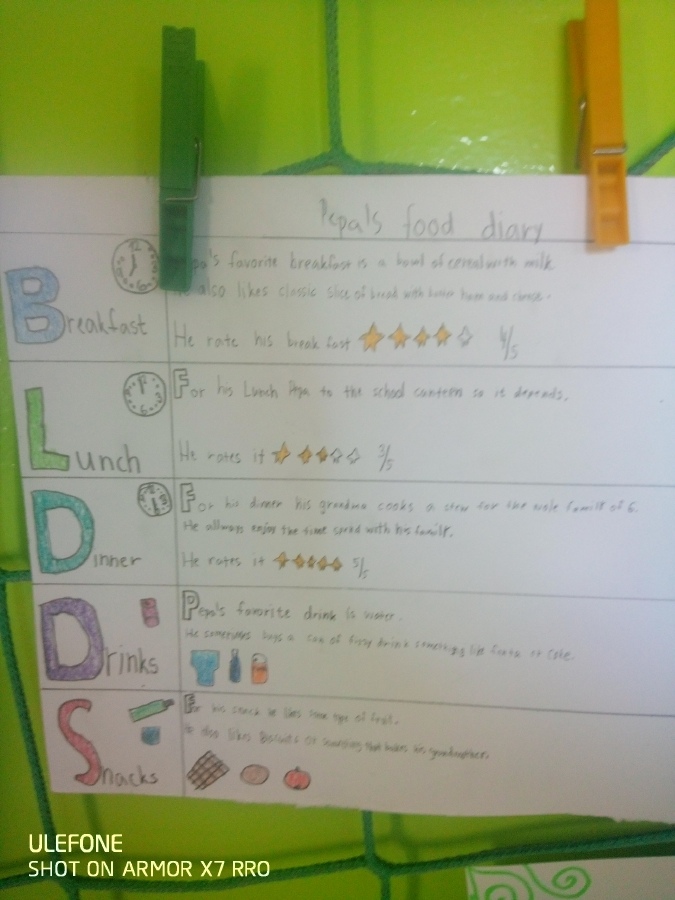 Pepa's food diary
Breakfast
pa's favorite breakfast is a bowl of cereal with milk
He also likes classic slice of bread with butter ham and cheese.
He rate his break fast 4/5
Lunch
For his Lunch Pepa to the school canteen so it depends.
He rates it 3/5
Dinner
For his dinner his grandma cooks a stew for the wole familt of 6.
He allways enjoy the time spend with his familt.
He rates it 5/5
Drinks
Pepa's favorite drink is water.
He sometimes buys a can of fizzy drink something like fanta or Coke.
Snacks
For his snack he likes some type of fruit.
He also likes Biscuits or something that bakes his grandmother.
ULEFONE
SHOT ON ARMOR X7 RRO